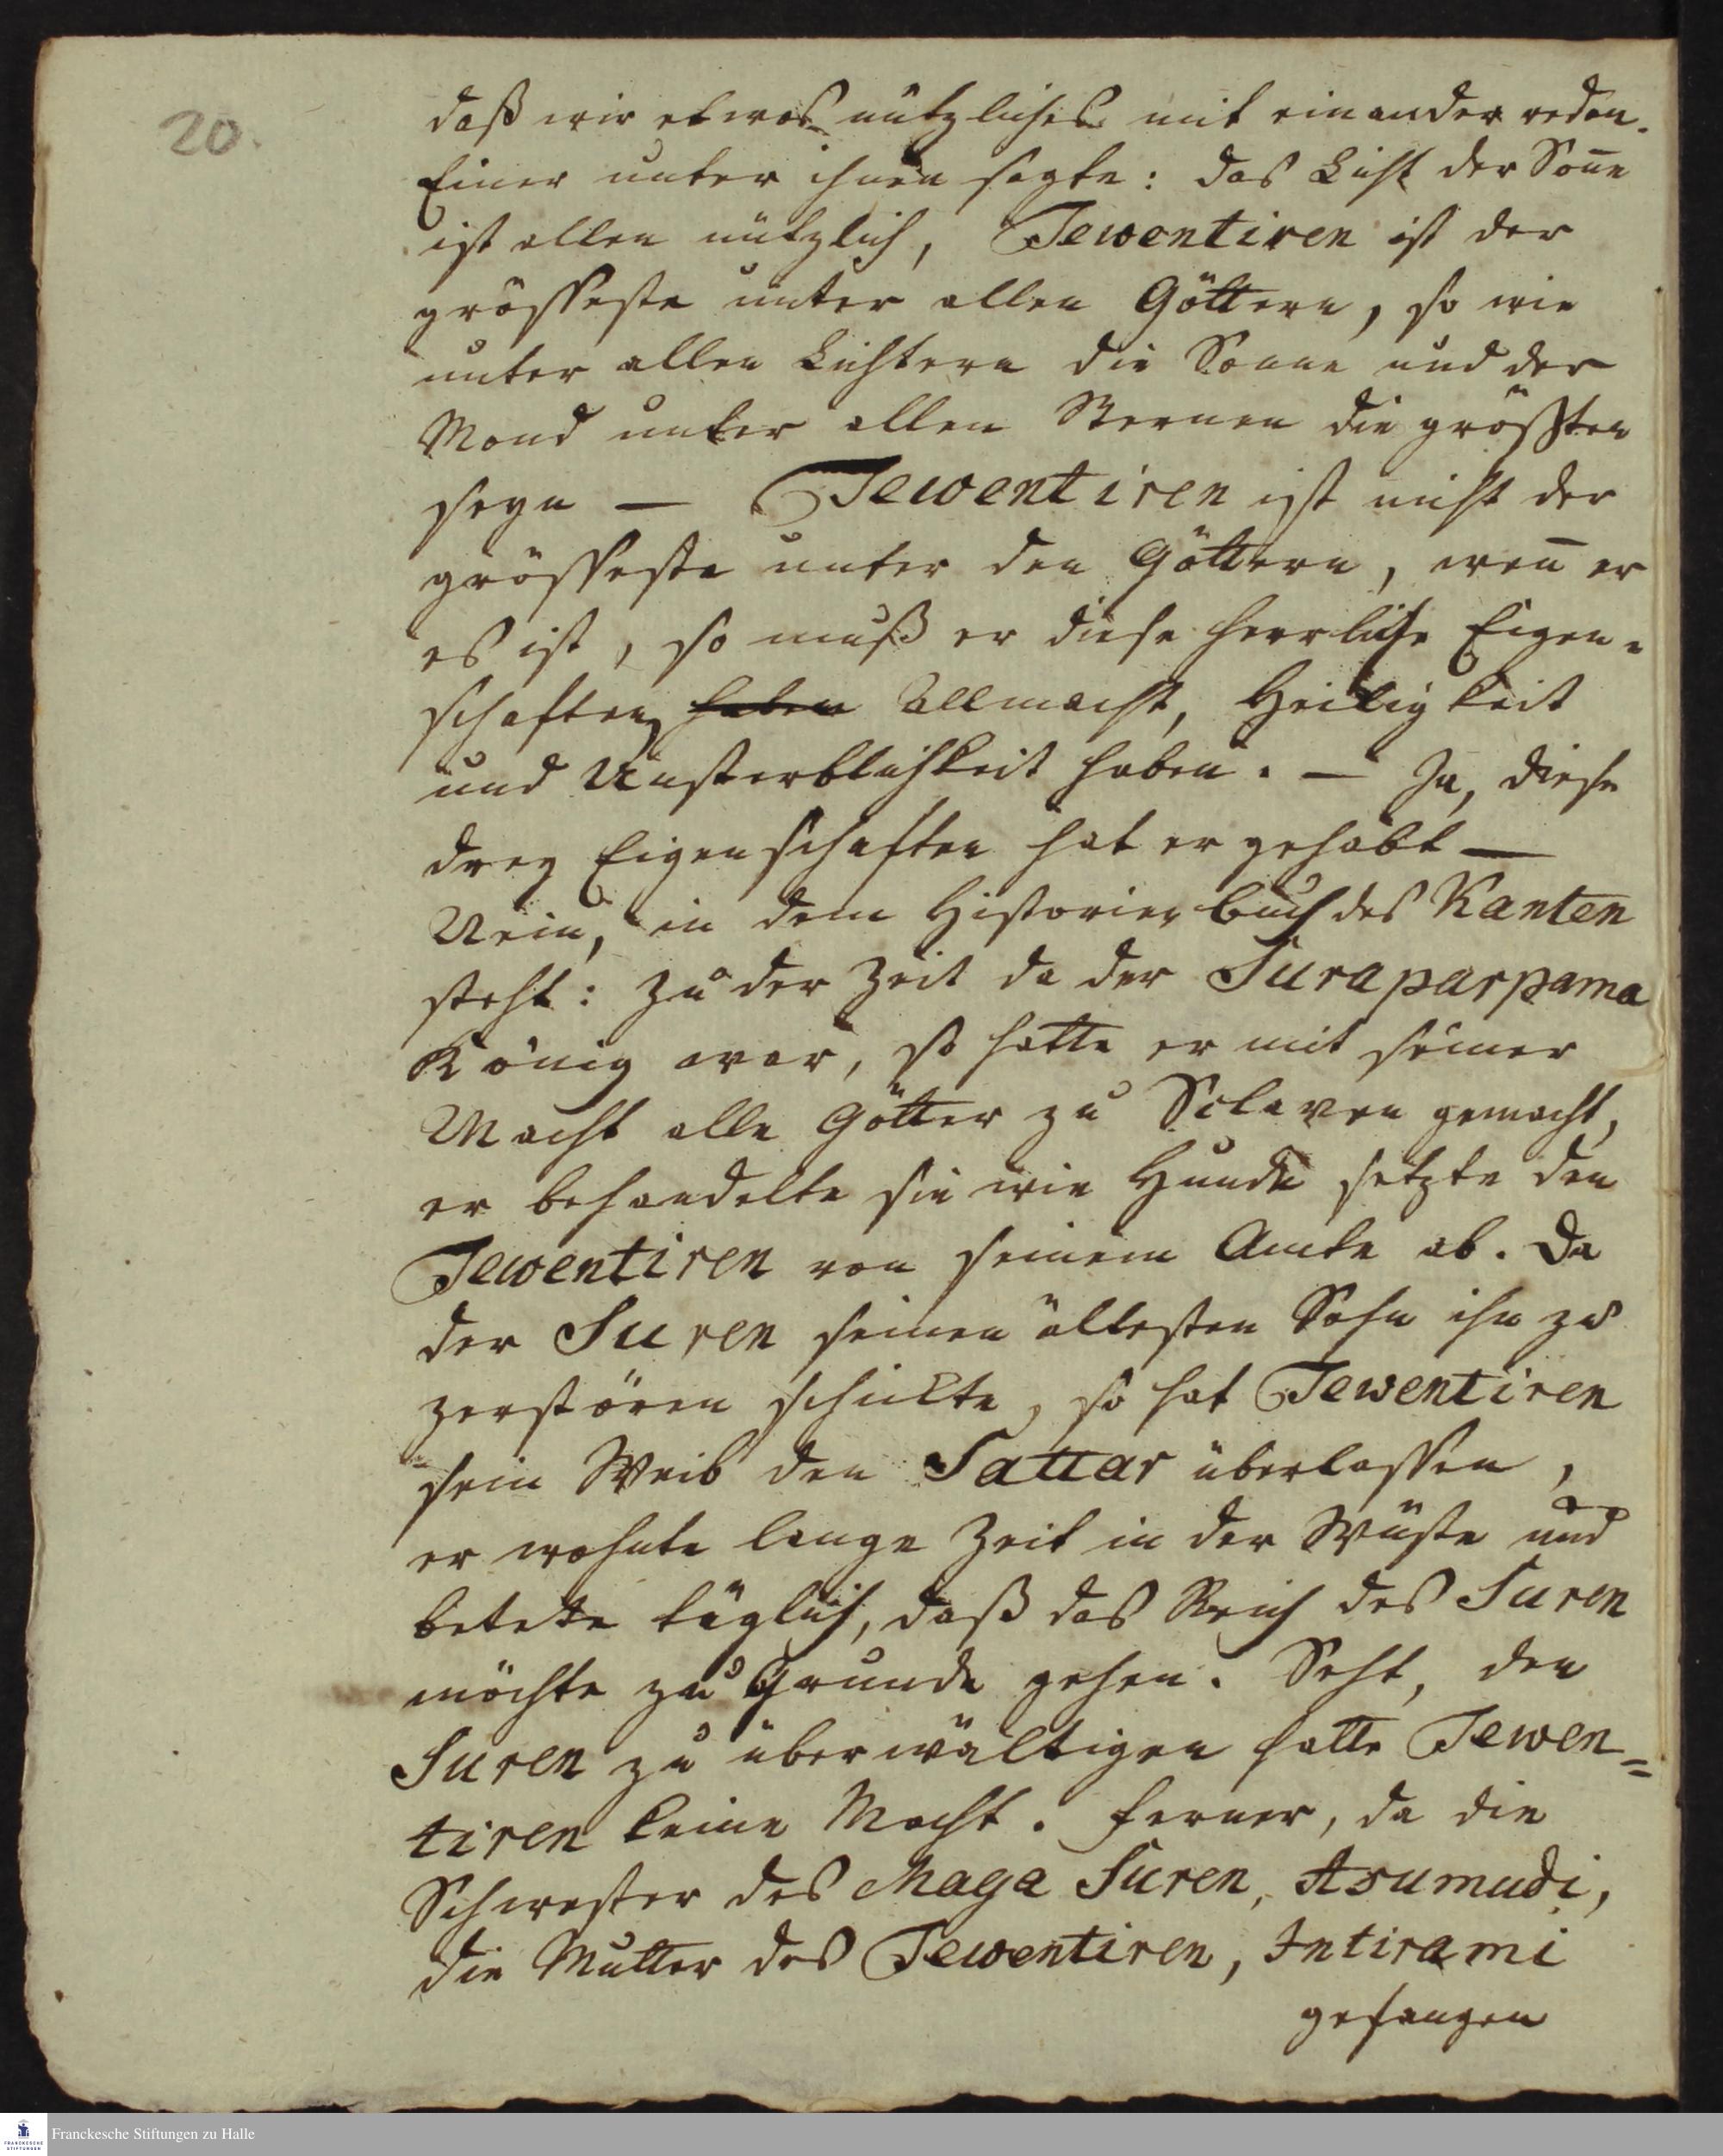 20.
daß wir etwas nützliches mit einander reden.
Einer unter ihnen sagte: das Licht der Soñe
ist allen nützlich, Tewentiren ist der
grösseste unter allen Göttern, so wie
unter allen Lichtern die Sonne und der
Mond unter allen Sternen die größten
seyn — Tewentiren ist nicht der
grösseste unter den Göttern, weñ er
es ist, so muß er diese herrliche Eigen-
schaften haben Allmacht, Heiligkeit
und Unsterblichkeit haben. — Ja, diese
drey Eigenschaften hat er gehabt —
Nein, in dem Historien buch des Kanten
steht: zu der Zeit da der Suraparpama
König war, so hatte er mit seiner
Macht alle Götter zu Sclaven gemacht,
er behandelte sie wie Hunde setzte den
Tewentiren von seinem Amte ab. Da
der Suren seinen ältesten Sohn ihn zu
zerstören schickte, so hat Tewentiren
sein Weib den Sattar überlassen,
er wohnte lange Zeit in der Wüste und
betete täglich, daß das Reich des Suren
möchte zu Grunde gehen. Seht, den
Suren zu überwältigen hatte Tewen=
tiren keine Macht. Ferner, da die
Schwester des Maga Suren, Asumudi,
die Mutter des Tewentiren, Intirami
gefangen
Franckesche Stiftungen zu Halle